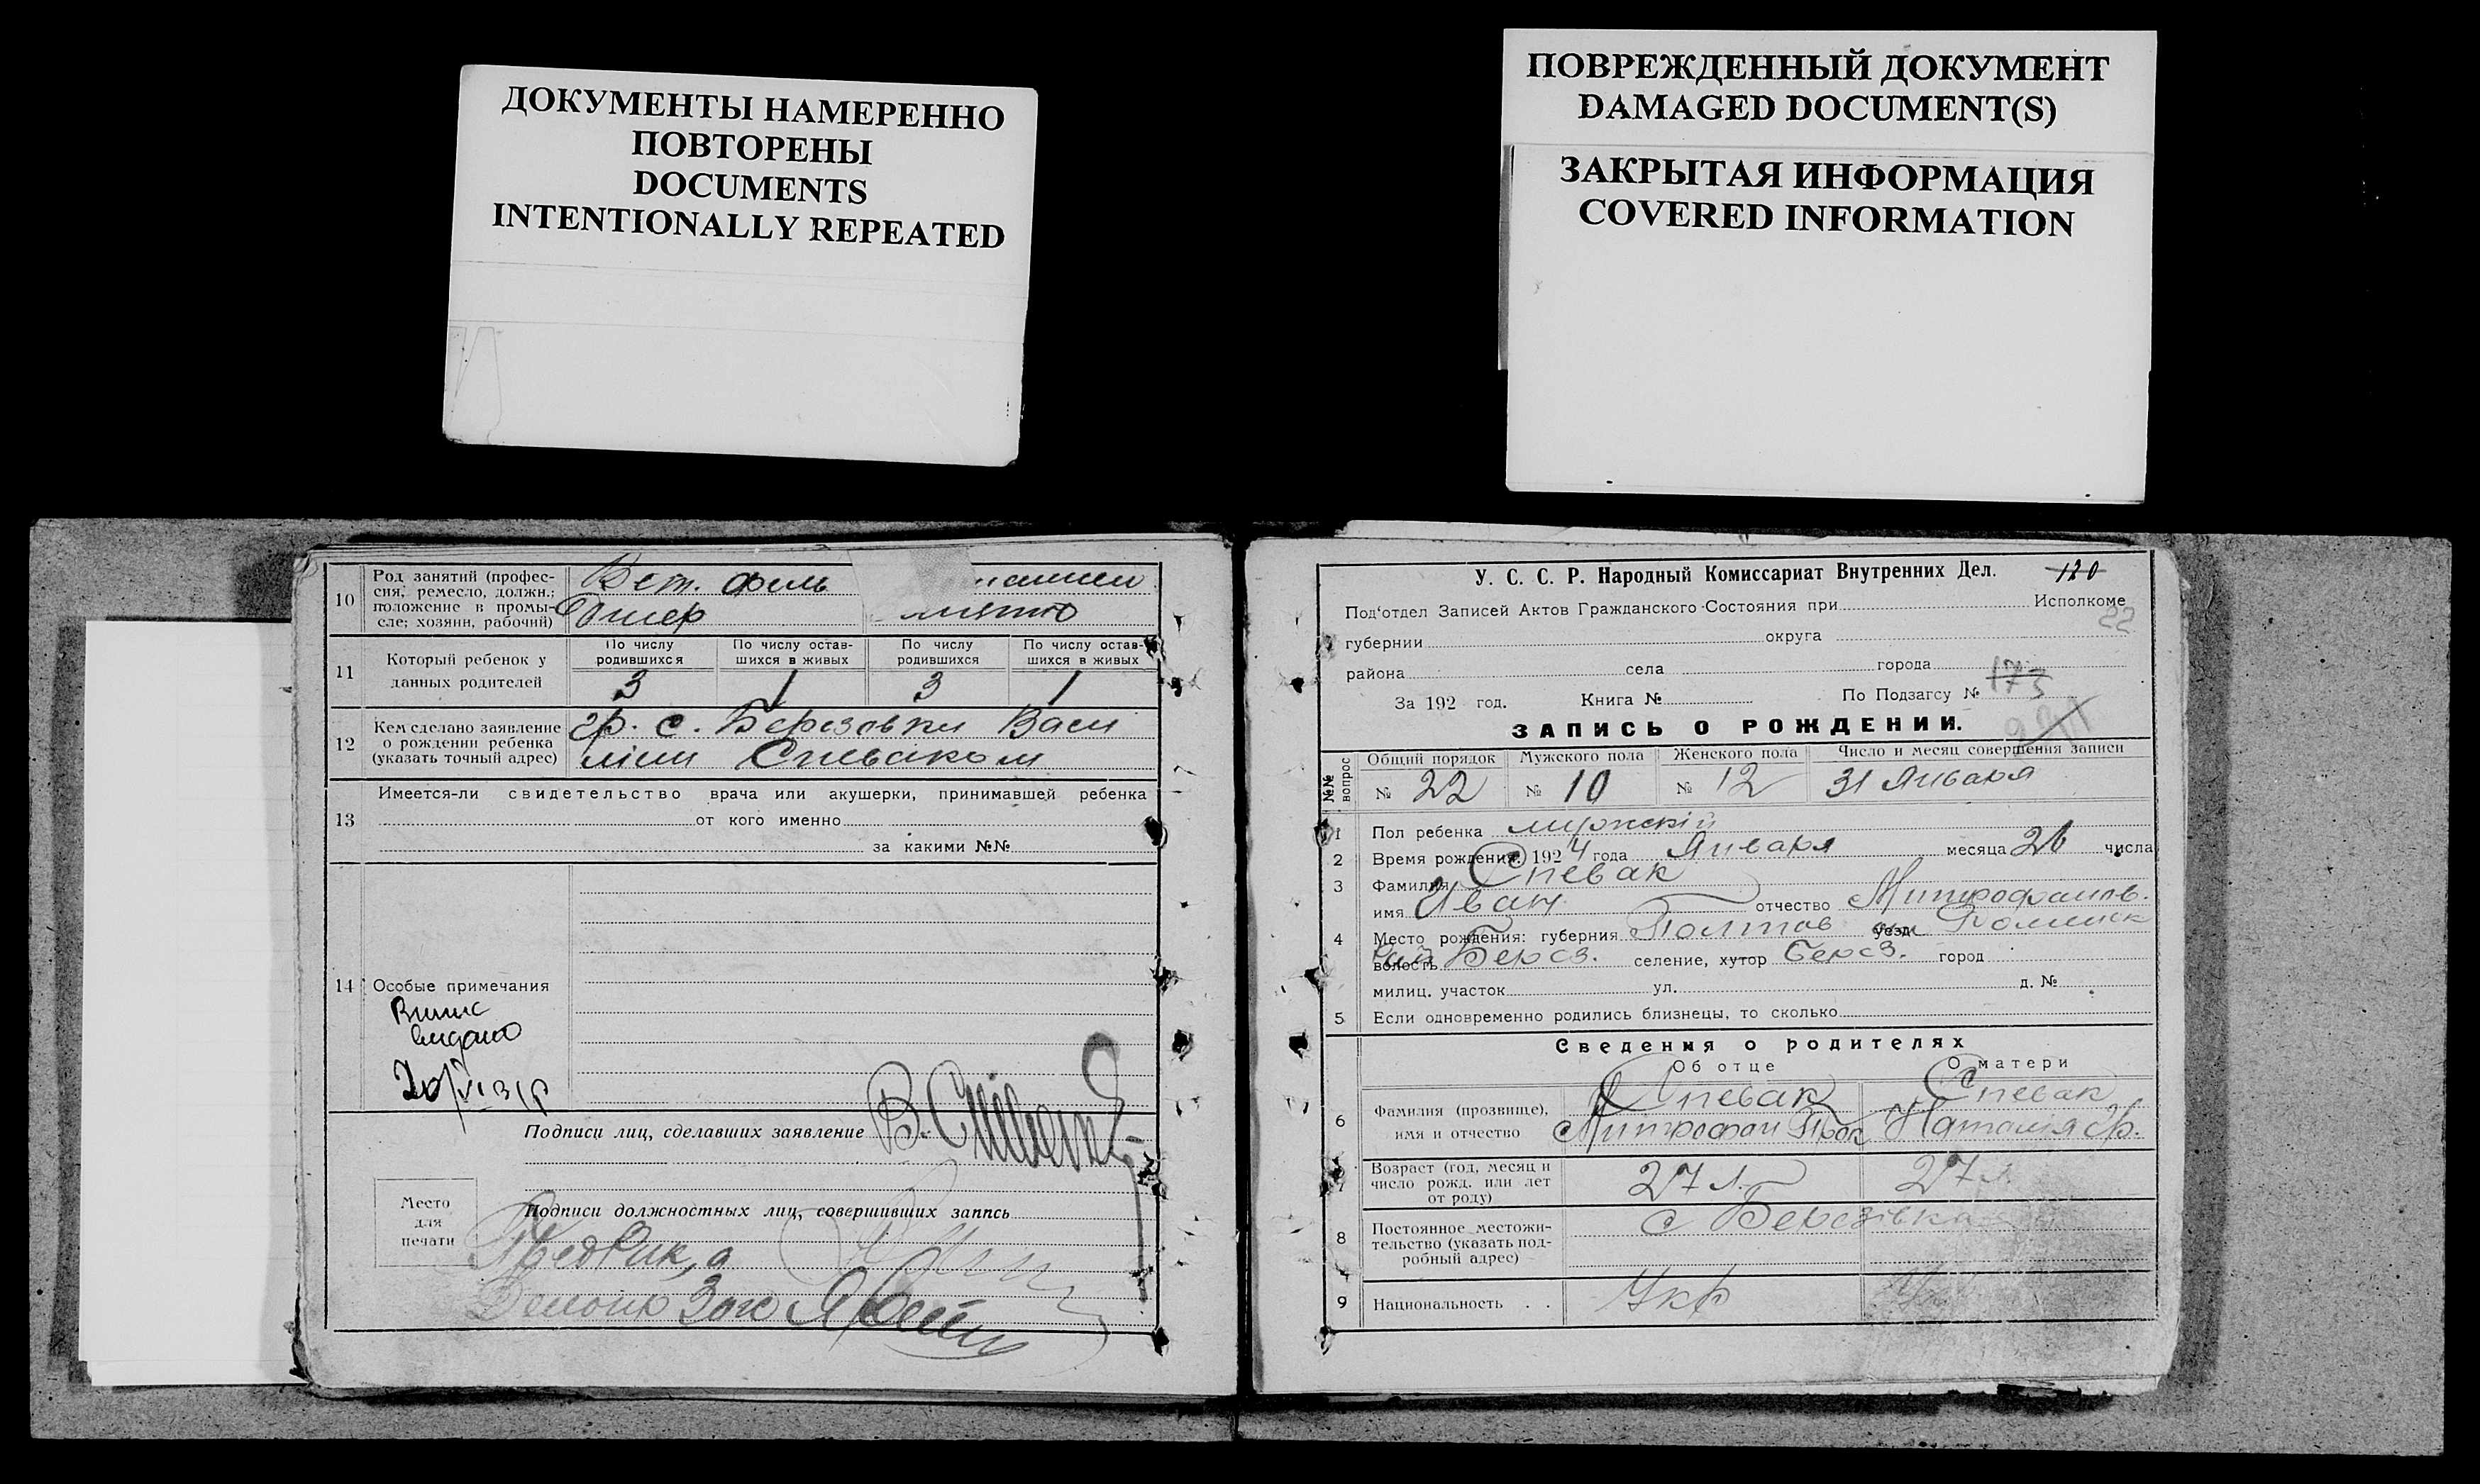 ДОКУМЕНТЫ НАМЕРЕННО
ПОВТОРЕНЫ
DOCUMENTS
INTENTIONALLY REPEATED
ПОВРЕЖДЕННЫЙ ДОКУМЕНТ
DAMAGED DOCUMENT(S)
ЗАКРЫТАЯ ИНФОРМАЦИЯ
COVERED INFORMATION
10 Род занятий (профес-
сия, ремесло, должн.;
положение в промы-
сле; хозяин, рабочий)
Вет. Фель
дшер
11 Который ребенок у
данных родителей
По числу родившихся По числу остав-шихся в живых По числу родившихся По числу остав-шихся в живых
3 1 3 1
12 Кем сделано заявление
о рождении ребенка
(указать точный адрес)
гр. с. Березовки Васи
лием Спеваком
13 Имеется-ли свидетельство врача или акушерки, принимавшей ребенка
от кого именно
за какими №№
14 Особые примечания
видано
Подписи лиц, сделавших заявление
Место
для
печати
Подписи должностных лиц, совершивших запись
У. С. С. Р. Народный Комиссариат Внутренних Дел. 120
Под'отдел Записей Актов Гражданского Состояния при Исполкоме
22
губернии округа
района села города
За 192 год. Книга № По Подзагсу № 173
ЗАПИСЬ О РОЖДЕНИИ.
№№ вопрос Общий порядок Мужского пола Женского пола Число и месяц совершения записи
№ 22 № 10 № 12 31 Января
1 Пол ребенка мужскій
2 Время рождения: 1924 года Января месяца 26 числа
3 Фамилия Спевак
имя Иван отчество Митрофанов.
4 Место рождения: губерния Полтав уезд
волость Берез. селение, хутор Берез. город
милиц. участок ул. д. №
5 Если одновременно родились близнецы, то сколько
Сведения о родителях
Об отце О матери
6 Фамилия (прозвище),
имя и отчество
Спевак Спевак
Митрофан Наталия
7 Возраст (год, месяц и
число рожд. или лет
от роду)
27 л. 27 л.
8 Постоянное местожи-
тельство (указать под-
робный адрес)
с Березівка
9 Национальность . . Укр